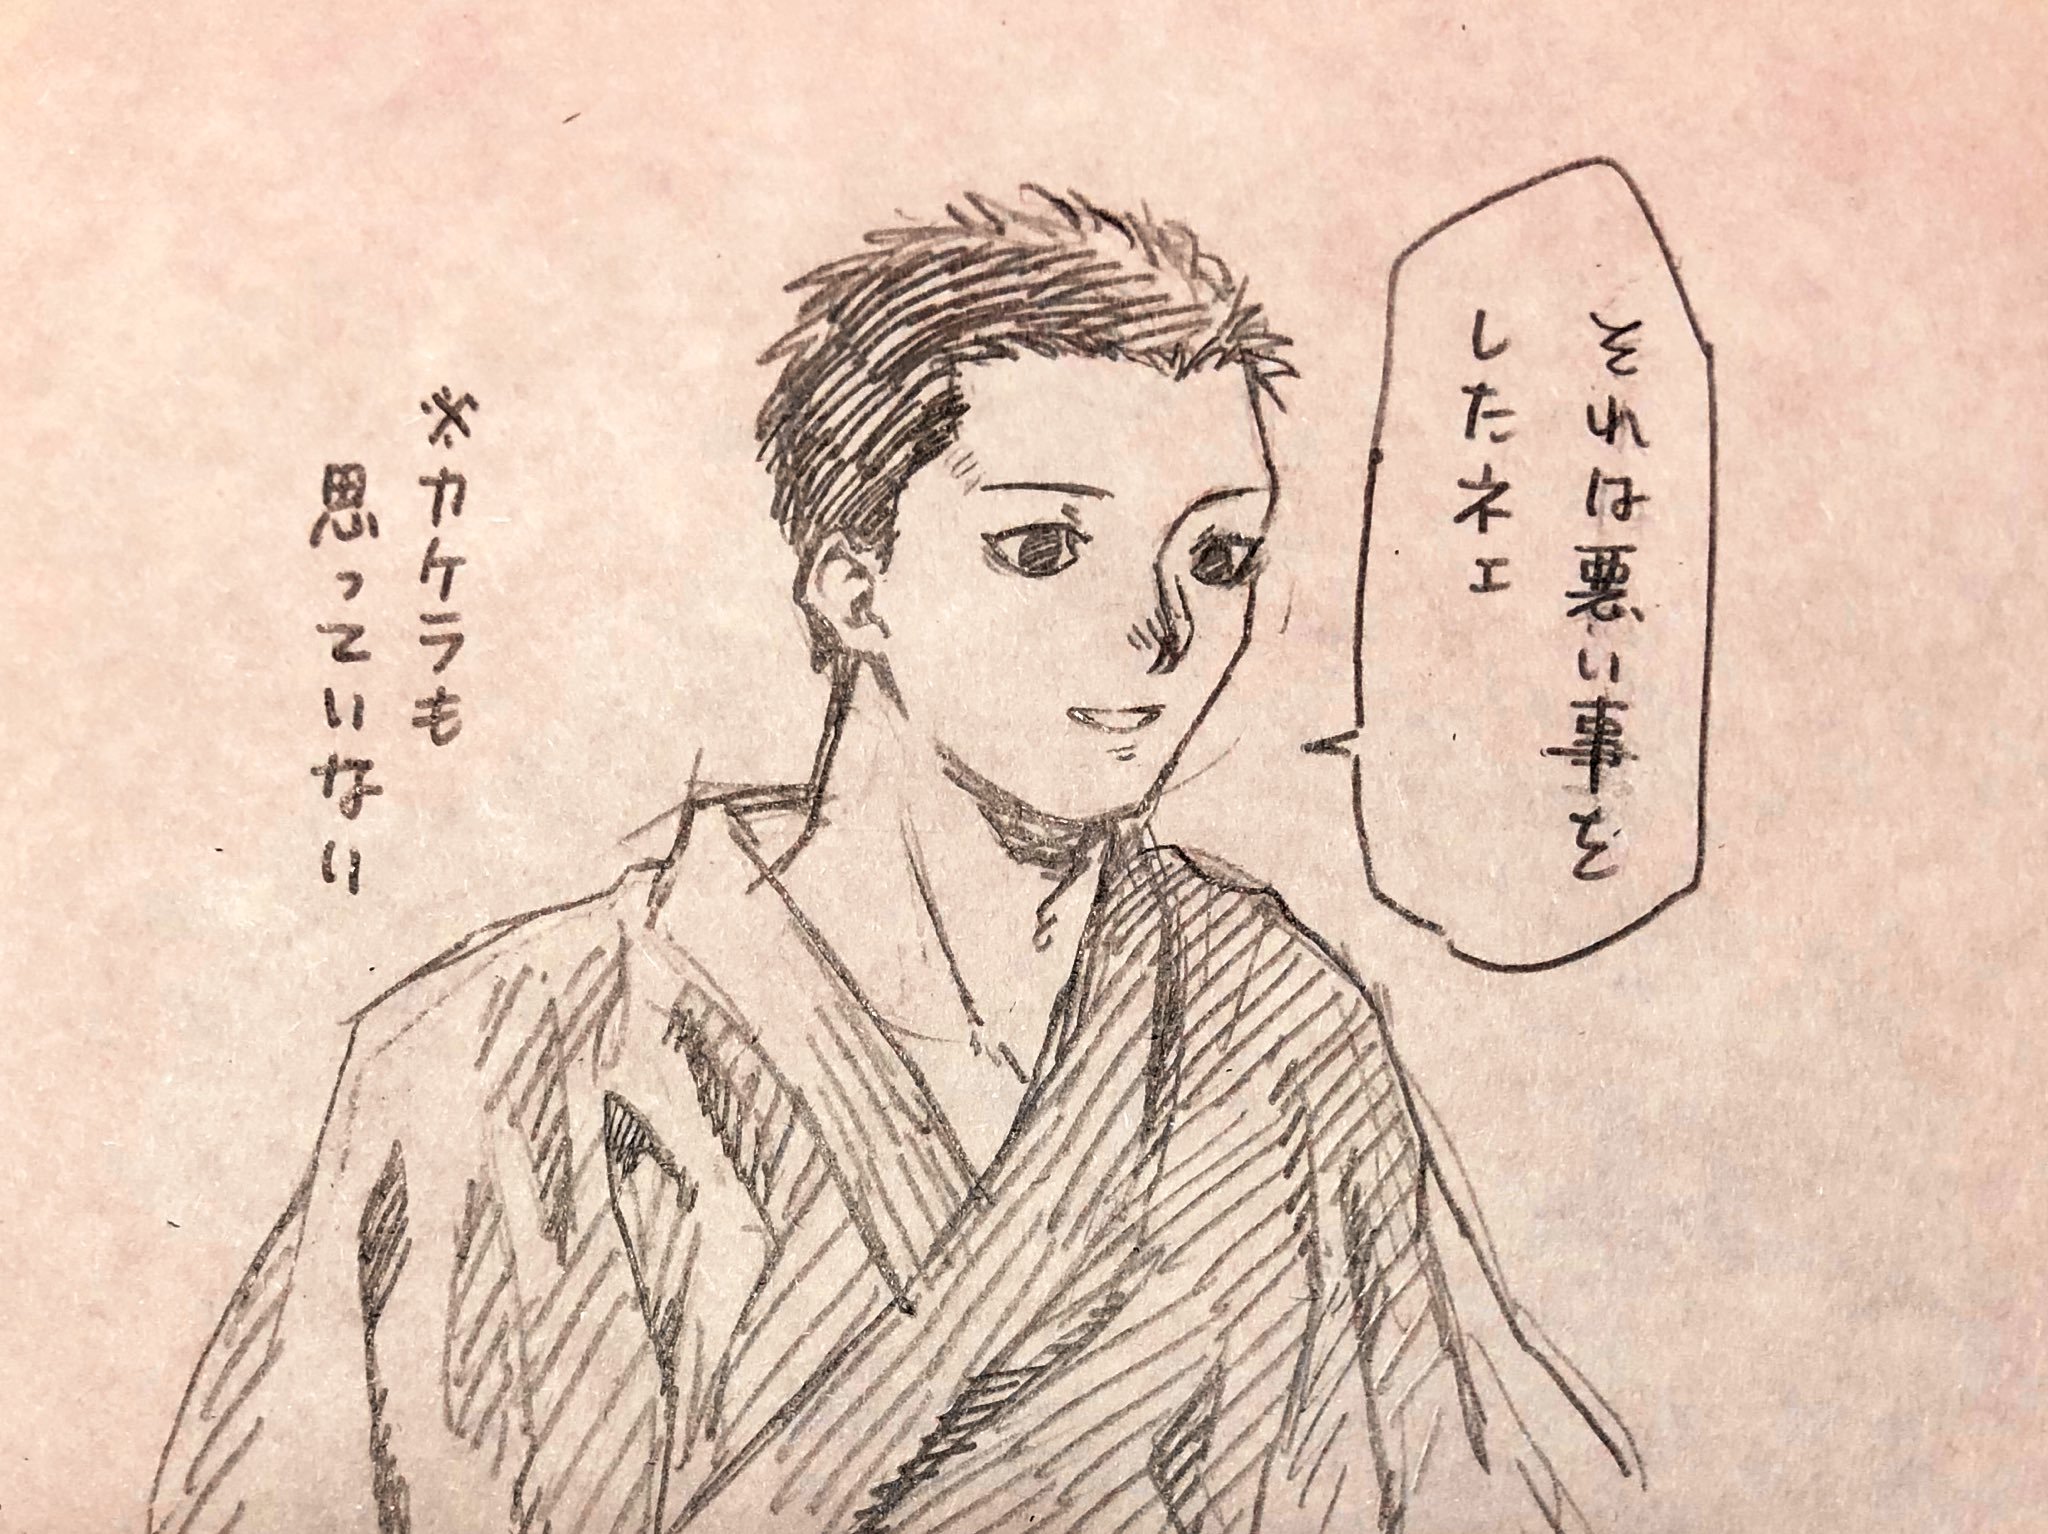 それは悪い事を
したネェ
※カケラも
思っていない